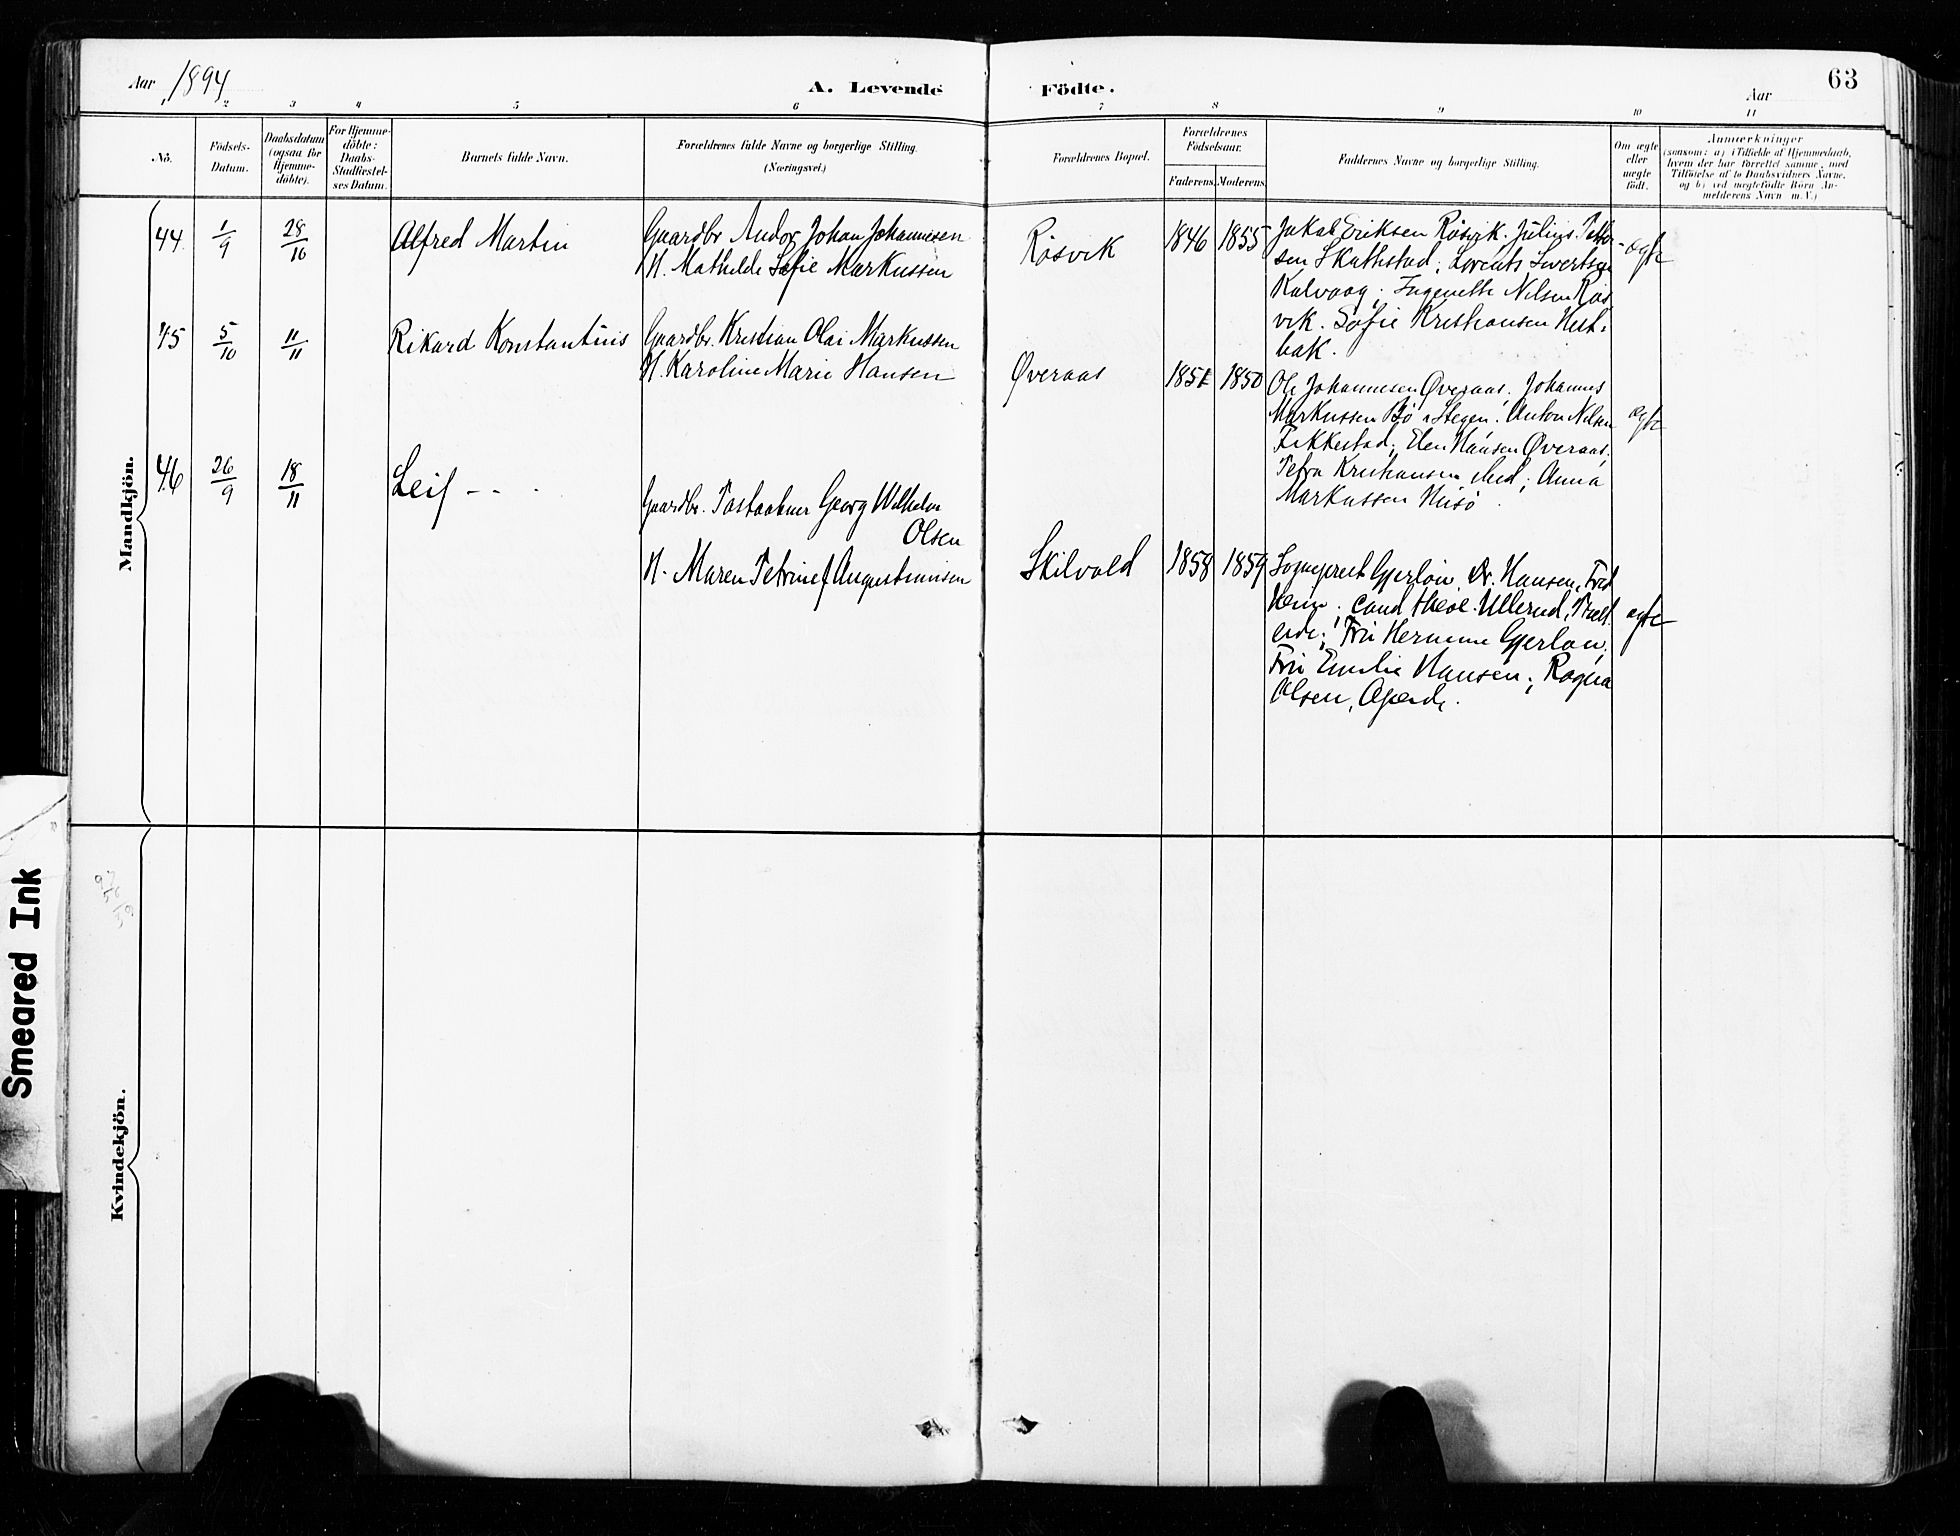 Aar 1894
A. Levende Födte.
Aar
63
1 2 3 4 5 6 7 8 9 10 11
No.
Födsels-
Datum.
Daabsdatum
(ogsaa for
Hjemme-
döbte).
For Hjemme-
döbte:
Daabs-
Stadfæstel-
ses Datum.
Barnets fulde Navn.
Forældrenes fulde Navne og borgerlige Stilling.
(Næringsvei.)
Forældrenes Bopæl.
Forældrenes
Födselsaar.
Faderens. Moderens.
Faddernes Navne og borgerlige Stilling.
Om ægte
eller
uægte
født.
Anmærkninger
(saasom: a) i Tilfælde af Hjemmedaab,
hvem der har forrettet samme, med
Tilföielse af to Daabsvidners Navne,
og b) ved uægtefödte Börn An-
melderens Navn m.V.)
Mandkjön.
44 1/9 28/10 Alfred Martin
Gaardbr Andor Johan Johannesen
H. Mathilde Sofie Markussen
Røsvik 1846 1855
Jakob Eriksen Røsvik. Julius Petter-
sen Skattestad; Lorents Sivertsen
Kalvaag; Ingenette Nilsen Røs
vik. Sofie Kristiansen Hest-
bak.
ægte
45 5/10 11/11 Rikard Konstantius
Gaardbr. Kristian Olai Markussen
H. Karoline Marie Hansen
Øveraas 1851 1850
Ole Johannesen Øveraas, Johannes
Markussen Bø i Stegen. Anton Nilsen
Fikkestad; Elen Hansen Øveraas,
Petra Kristiansen ; Anna
Markussen Husø.
ægte
46 26/9 18/11 Leif - - -
Gaardbr. Postaabner Georg Wilhelm
Olsen
H. Maren Petrine f Augustinusen
Skilvold 1858 1859
Sogneprest Gjerløw Dr. Hansen, Fred
Heim; cand theol. Ullerud,
eide; Fru Hermine Gjerløw,
Fru Emilie Hansen; Ragna
Olsen, Gjerde.
ægte
Kvindekjön.
Smeared Ink